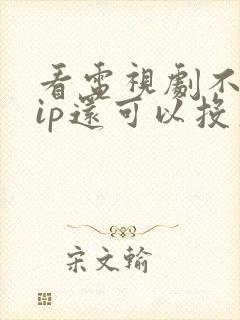 看電視劇不
ip還可以投
宋文翰